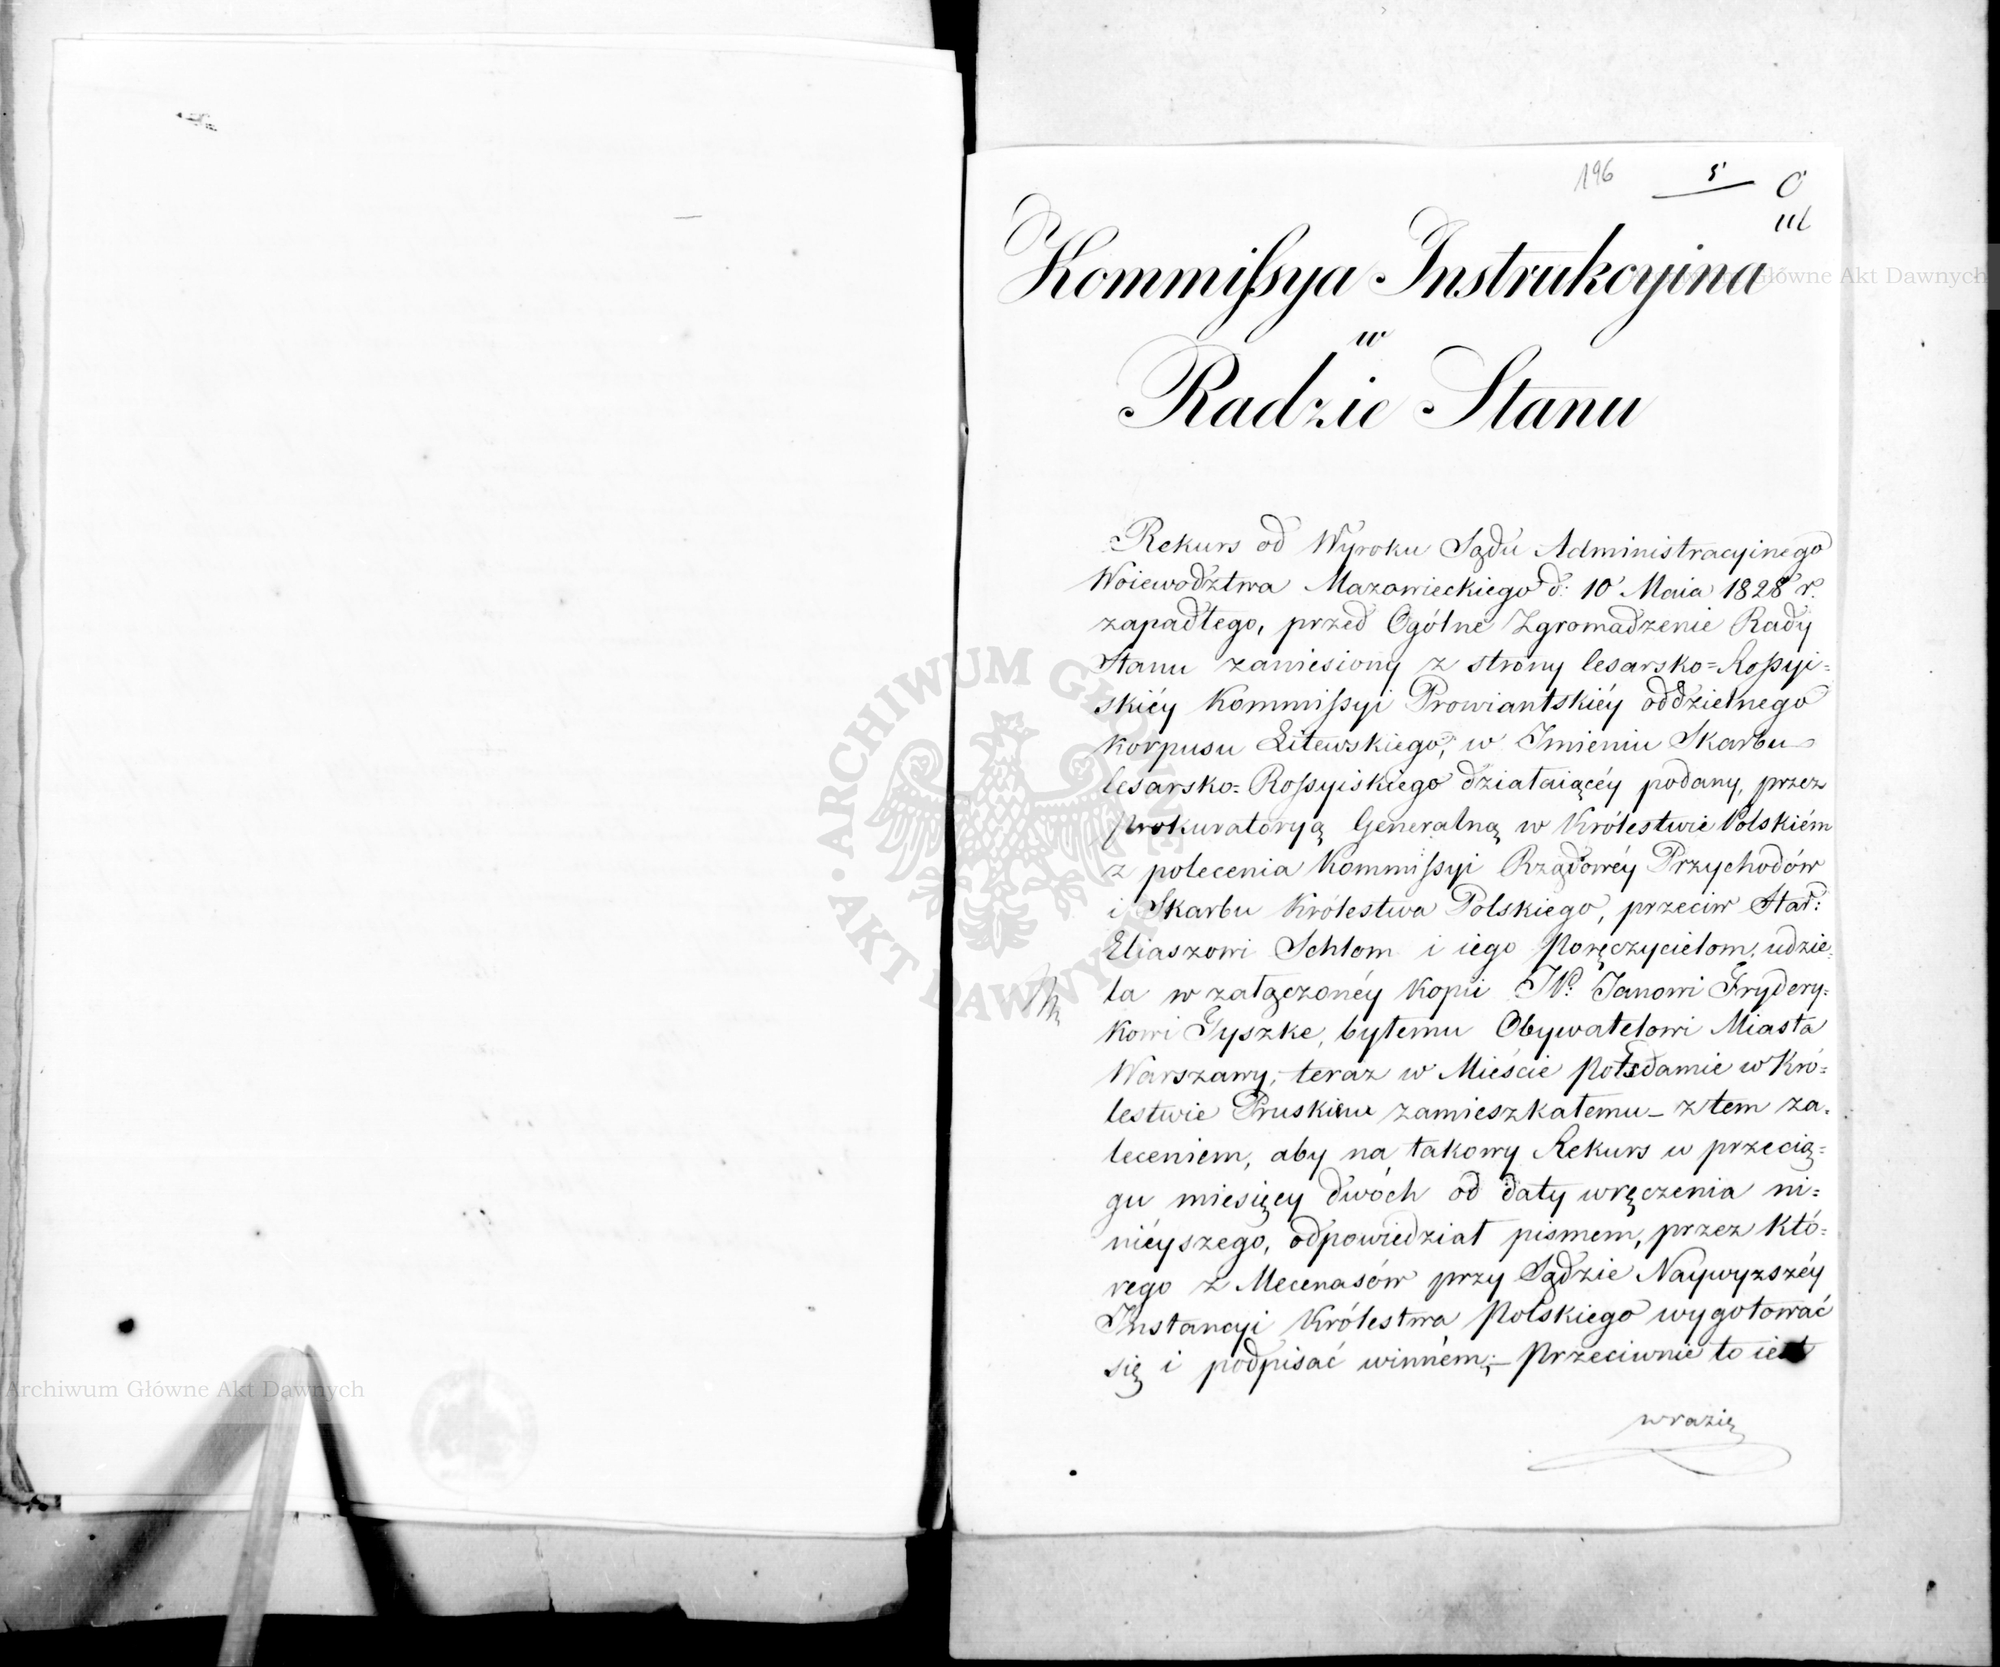 196 5
Kommissya Instrukcyina
w
Radzie Stanu
Rekurs od Wyroku Sądu Administracyinego
Woiewodztwa Mazowieckiego d: 10 Maia 1828 r.
zapadłego, przed Ogólne Zgromadzenie Rady
Stanu zaniesiony z strony Cesarsko=Rossyi=
skiéy Kommissyi Prowiantskiéy oddzielnego
Korpusu Litewskiego, w Imieniu Skarbu
Cesarsko=Rossyiskiego działaiącéy podany, przez
Prokuratoryą Generalną w Królestwie Polskiém
z polecenia Kommissyi Rządowéy Przychodów
i Skarbu Królestwa Polskiego, przeciw Star:
Eliaszowi Schlom i iego Poręczycielom, udzie=
la w załączonéy Kopii W. Janowi Frydery=
kowi Tyszke, byłemu Obywatelowi Miasta
Warszawy, teraz w Mieście Potsdamie w Kró=
lestwie Pruskiem zamieszkałemu – z tem za=
leceniem, aby na takowy Rekurs w przecią=
gu miesięcy dwóch od daty wręczenia ni=
niéyszego, odpowiedział pismem, przez któ=
rego z Mecenasów przy Sądzie Naywyższéy
Instancyi Królestwa Polskiego wygotować
się i podpisać winném; – Przeciwnie to iest
w razie
ARCHIWUM GŁÓWNE
AKT DAWNYCH
Archiwum Główne Akt Dawnych
Archiwum Główne Akt Dawnych